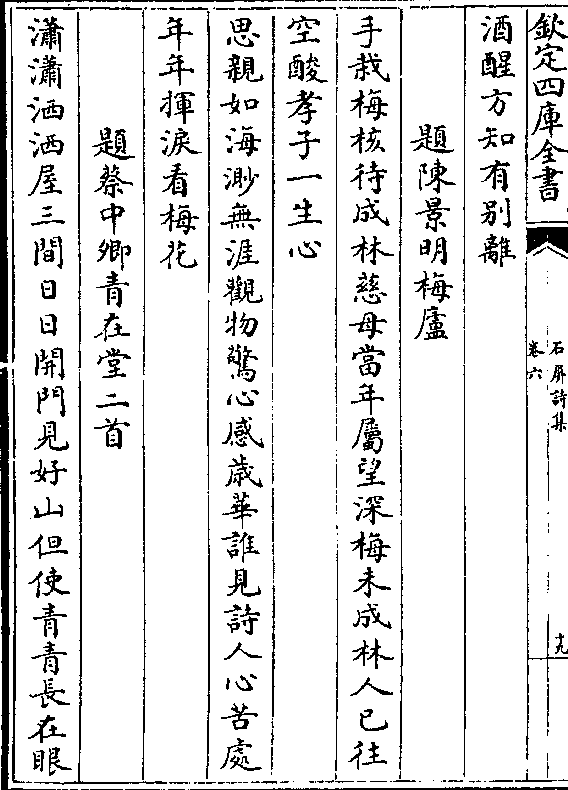 欽定四庫全書
石屏詩集
卷六
十九
酒醒方知有别離
題陳景明梅廬
手栽梅核待成林慈母當年屬望深梅未成林人已往
空酸孝子一生心
思親如海渺無涯觀物驚心感歳華誰見詩人心苦處
年年揮淚看梅花
題蔡中卿青在堂二首
瀟瀟洒洒屋三間日日開門見好山但使青青長在眼